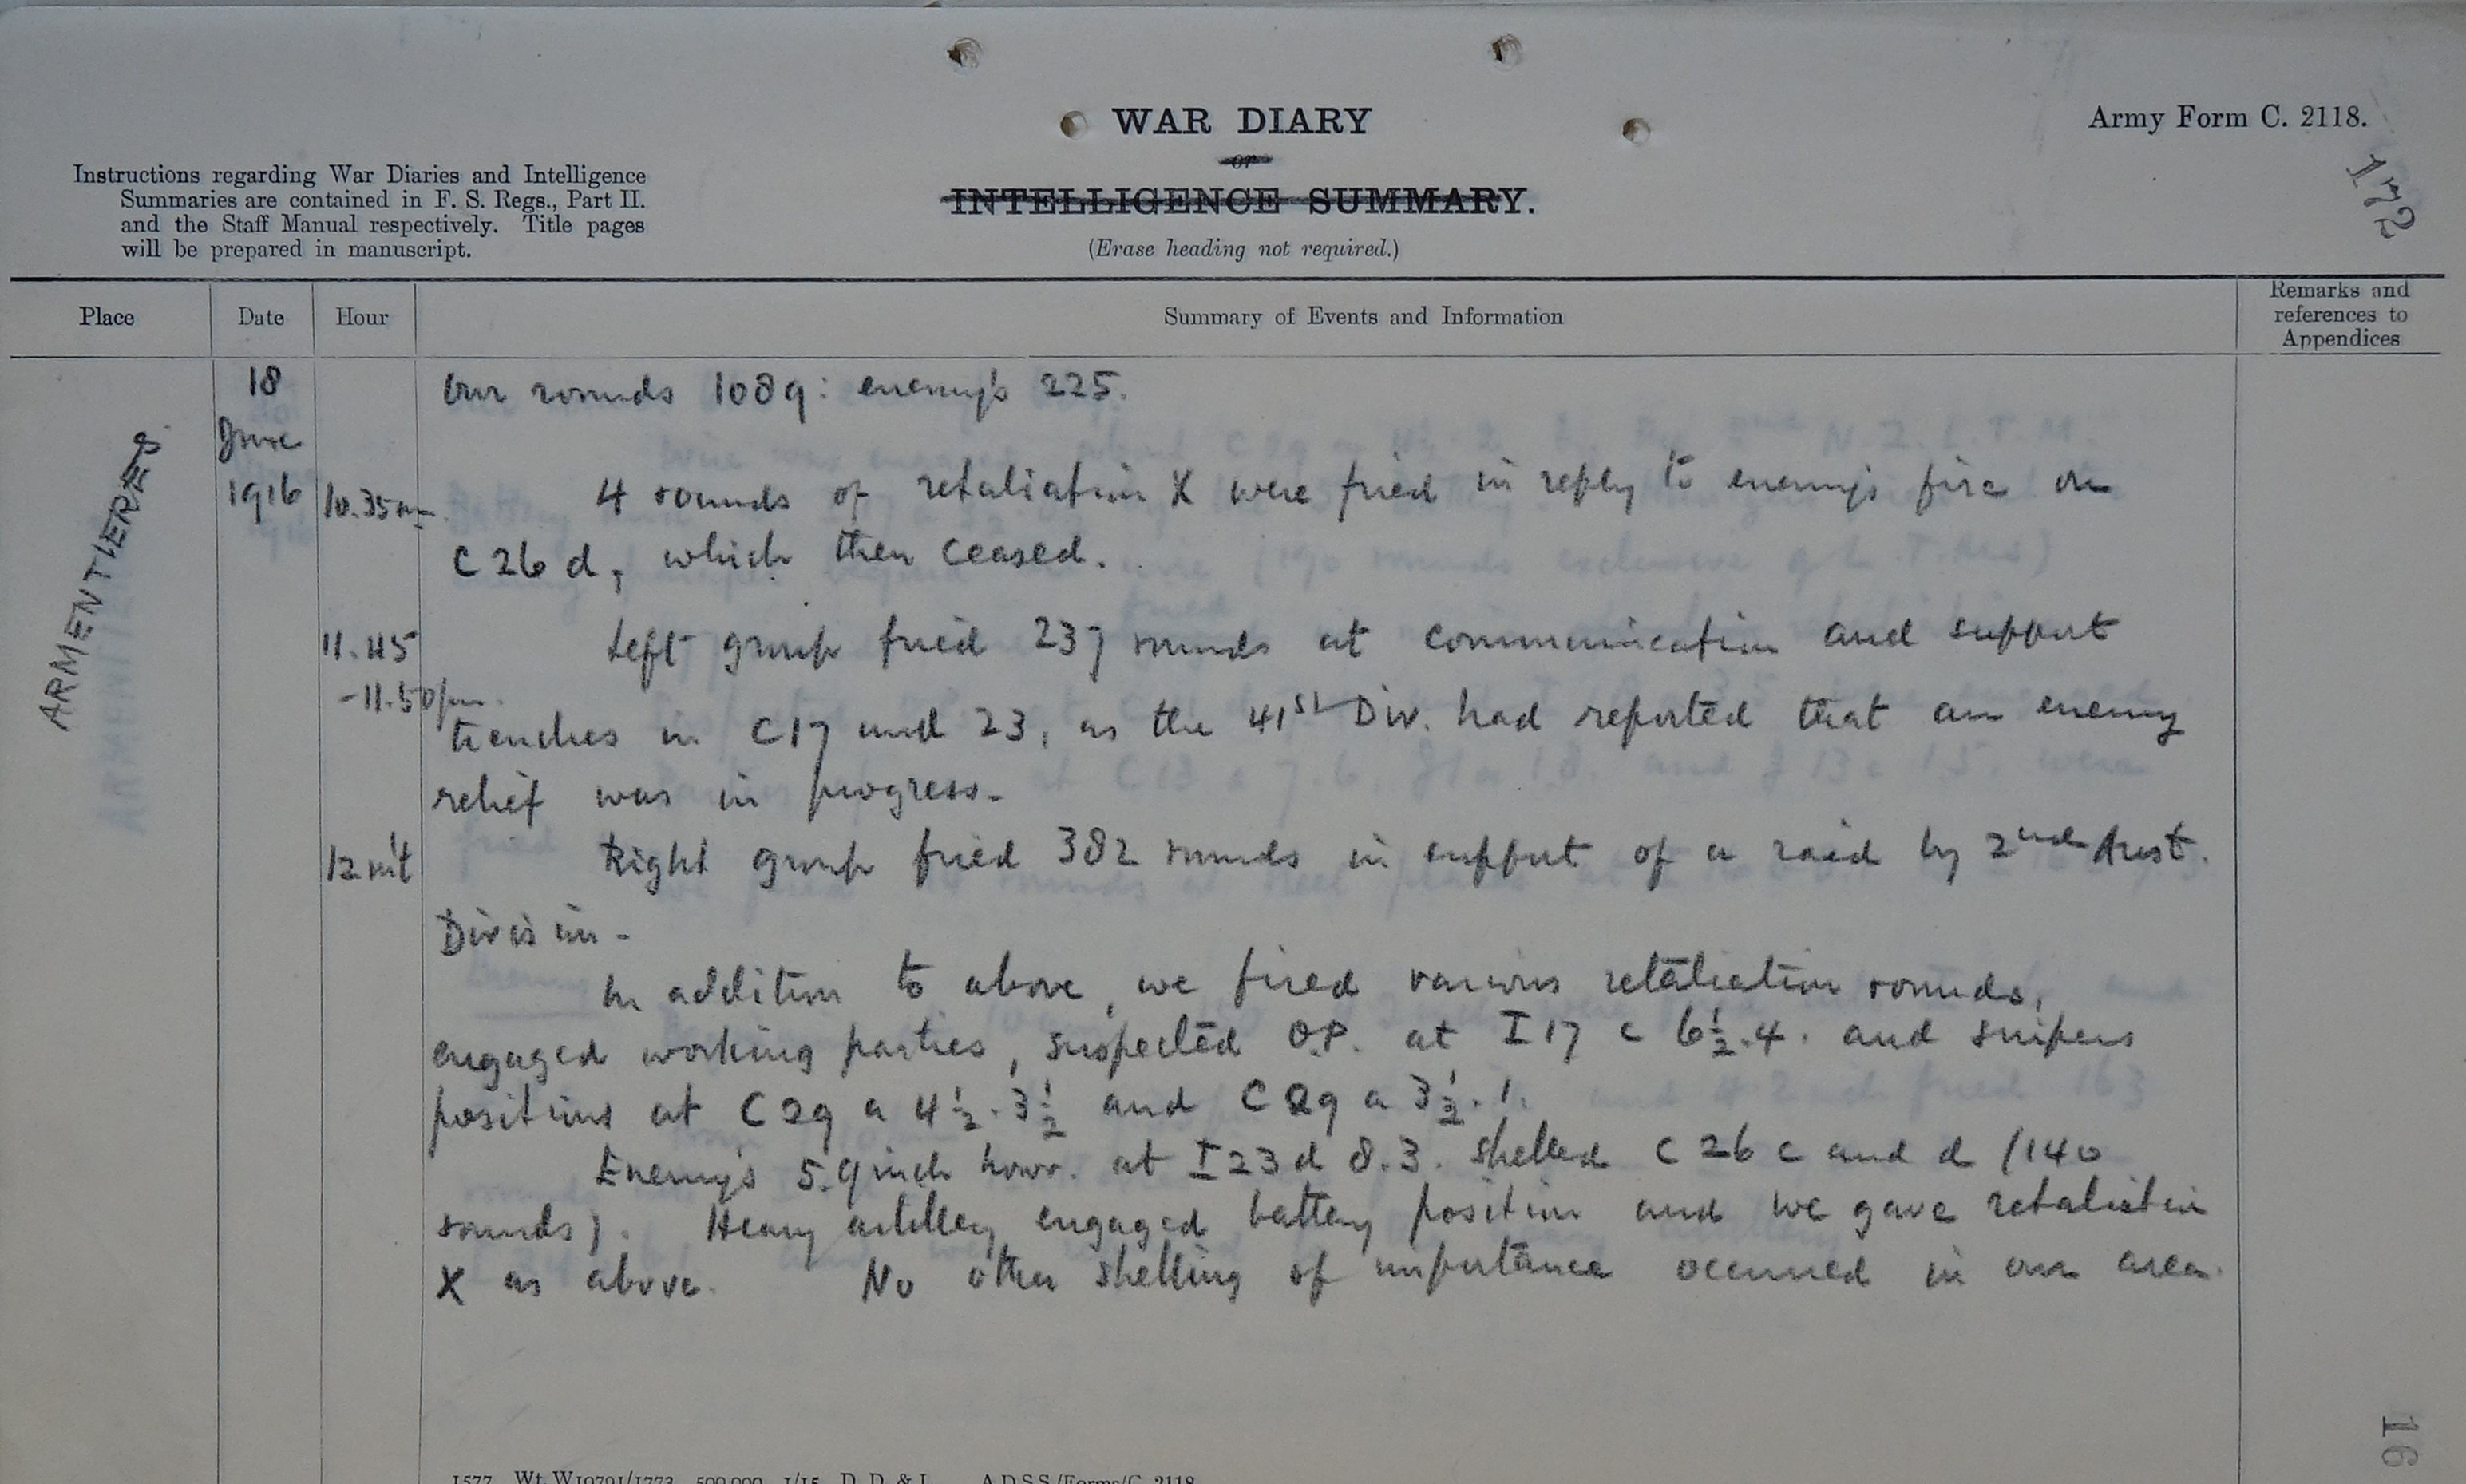 WAR DIARY
Army Form C. 2118.
or
INTELLIGENCE SUMMARY.
(Erase heading not required.)
172
Instructions regarding War Diaries and Intelligence
Summaries are contained in F. S. Regs., Part II.
and the Staff Manual respectively. Title pages
will be prepared in manuscript.
Place
Date
Hour
Summary of Events and Information
Remarks and
references to
Appendices
ARMENTIERES
18
June
1916
Our rounds 1089: enemy's 225.
10.35am. 4 rounds of retaliation X were fired in reply to enemy's fire on
C 26 d, which then ceased.
11.45 Left group fired 237 rounds at communication and support
-11.50pm.
trenches in C17 and 23, as the 41st Div. had reported that an enemy
relief was in progress.
12 m't Right group fired 382 rounds in support of a raid by 2nd Aust.
Division -
In addition to above, we fired various retaliation rounds,
engaged working parties, suspected O.P. at I 17 c 6½.4. and snipers
positions at C 29 a 4½.3½ and C 29 a 3½.1.
Enemy's 5.9 inch howr. at I 23 d 8.3. shelled C 26 c and d (140
rounds). Heavy artillery engaged battery position and we gave retaliation
X as above. No other shelling of importance occurred in our area.
16
1577 Wt. W10791/1773 500,000 1/15 D. D. & L. A.D.S.S./Forms/C. 2118.